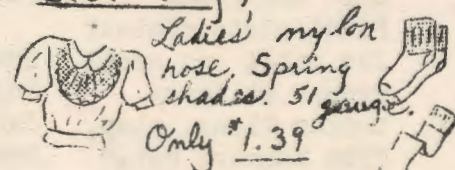 Ladies' nylon
hose. Spring
shades. 51 gauge.
Only $1.39